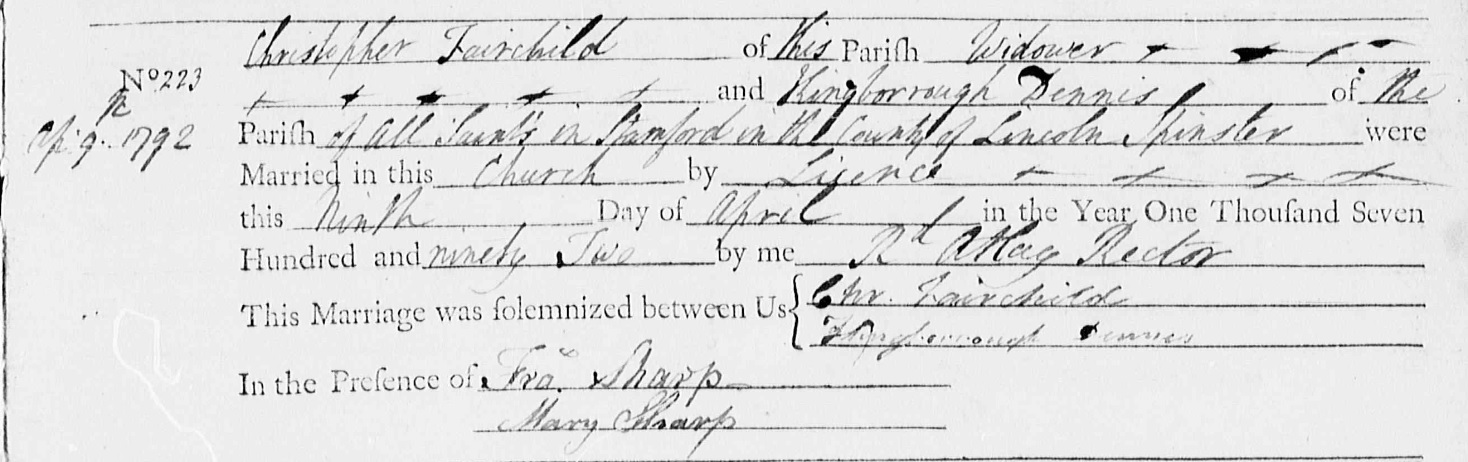 Christopher Fairchild of this Pariſh Widower
Nº 223
and Kingborrough Dennis of the
Apl 9th 1792
Pariſh of All Saints in Stamford in the County of Lincoln Spinster were
Married in this Church by Licence
this Ninth Day of April in the Year One Thouſand Seven
Hundred and ninety Two by me Rd Atlay Rector
This Marriage was ſolemnized between Us { Chr. Fairchild
Kingborrough Dennis
In the Preſence of Fra. Sharp
Mary Sharp